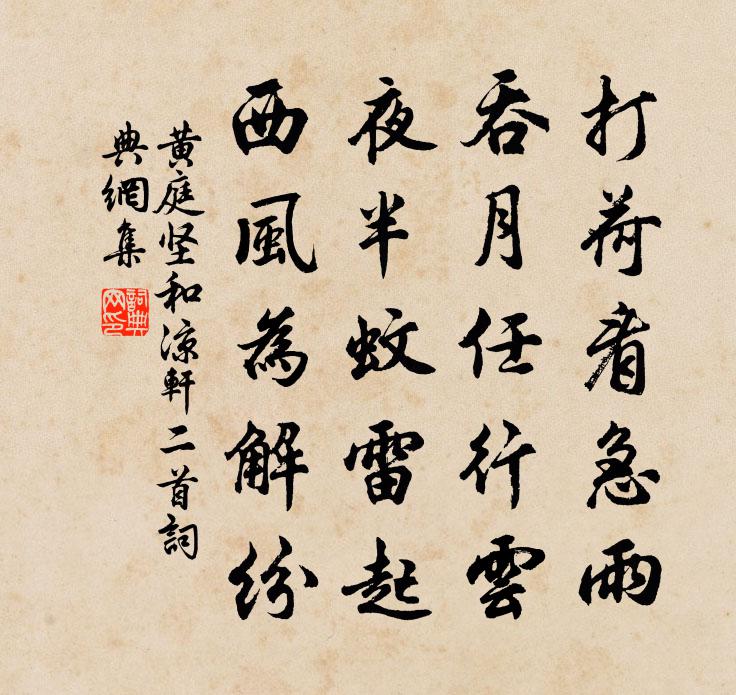 打荷看急雨
吞月任行雲
夜半蚊雷起
西風為解紛
黄庭坚和涼軒二首詞
典網集
詞典
网印